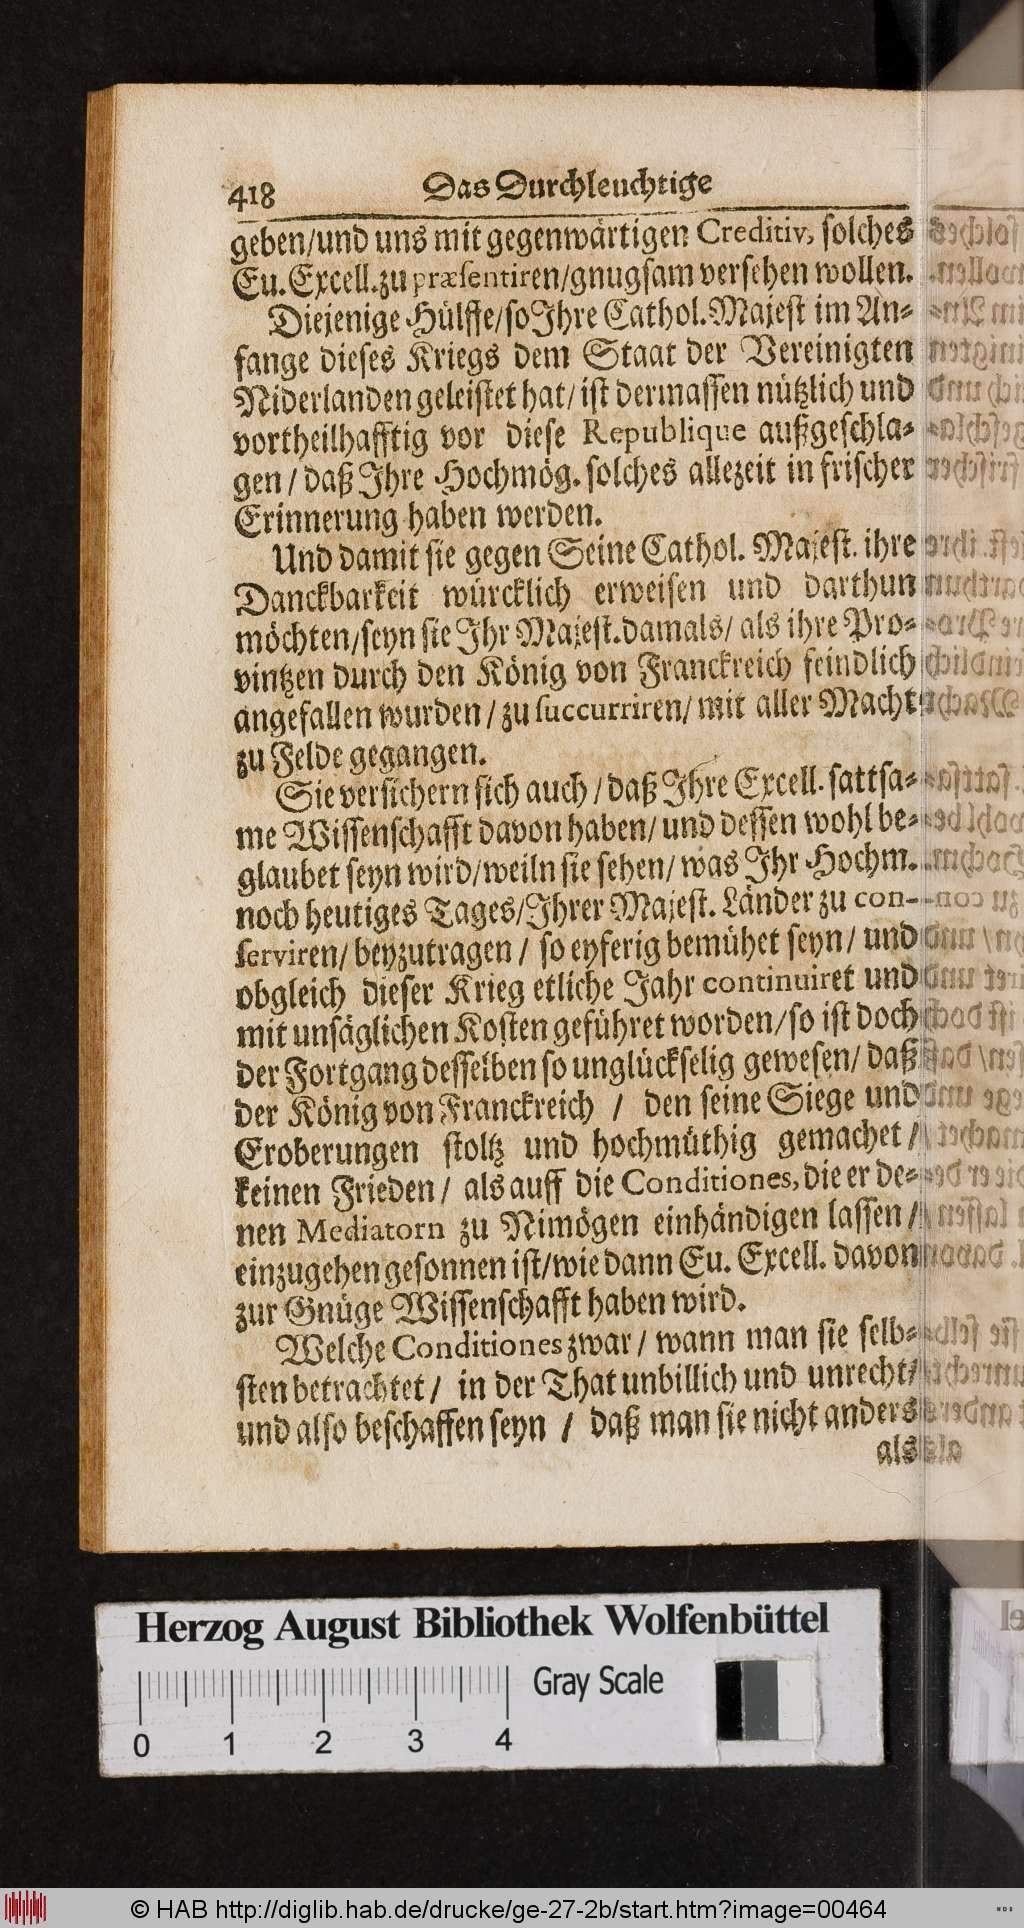 418 Das Durchleuchtige
geben/und uns mit gegenwärtigen Creditiv, solches
Eu. Excell. zu præsentiren/gnugsam versehen wollen.
Diejenige Hülffe/so Ihre Cathol. Majest im An-
fange dieses Kriegs dem Staat der Vereinigten
Niderlanden geleistet hat/ ist dermassen nützlich und
vortheilhafftig vor diese Republique außgeschla-
gen / daß Ihre Hochmög. solches allezeit in frischer
Erinnerung haben werden.
Und damit sie gegen Seine Cathol. Majest. ihre
Danckbarkeit würcklich erweisen und darthun
möchten/seyn sie Ihr Majest. damals/ als ihre Pro-
vintzen durch den König von Franckreich feindlich
angefallen wurden / zu succurriren/ mit aller Macht
zu Felde gegangen.
Sie versichern sich auch / daß Ihre Excell. sattsa-
me Wissenschafft davon haben/ und dessen wohl be-
glaubet seyn wird/weiln sie sehen/ was Ihr Hochm.
noch heutiges Tages/Ihrer Majest. Länder zu con-
serviren/ beyzutragen / so eyferig bemühet seyn/ und
obgleich dieser Krieg etliche Jahr continuiret und
mit unsäglichen Kosten geführet worden/so ist doch
der Fortgang desselben so unglückselig gewesen/ daß
der König von Franckreich / den seine Siege und
Eroberungen stoltz und hochmüthig gemachet /
keinen Frieden/ als auff die Conditiones, die er de-
nen Mediatorn zu Nimögen einhändigen lassen /
einzugehen gesonnen ist/wie dann Eu. Excell. davon
zur Gnüge Wissenschafft haben wird.
Welche Conditiones zwar / wann man sie selb-
sten betrachtet / in der That unbillich und unrecht/
und also beschaffen seyn / daß man sie nicht anders
als
Herzog August Bibliothek Wolfenbüttel
Gray Scale
0 1 2 3 4
© HAB http://diglib.hab.de/drucke/ge-27-2b/start.htm?image=00464